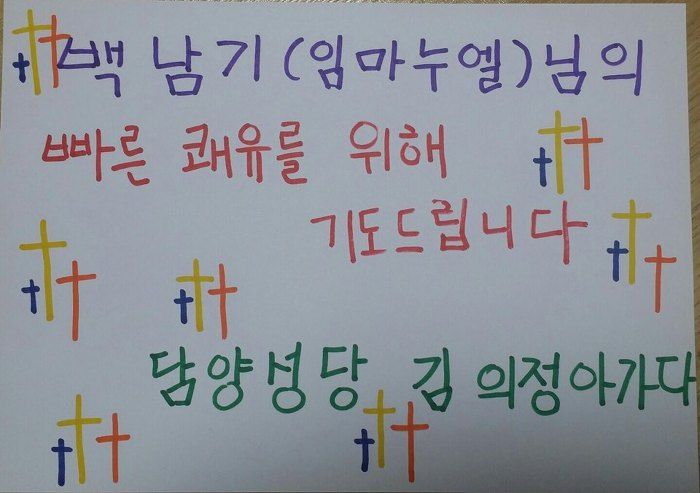 백남기(임마누엘)님의
빠른 쾌유를 위해
기도드립니다
담양성당 김 의정아가다